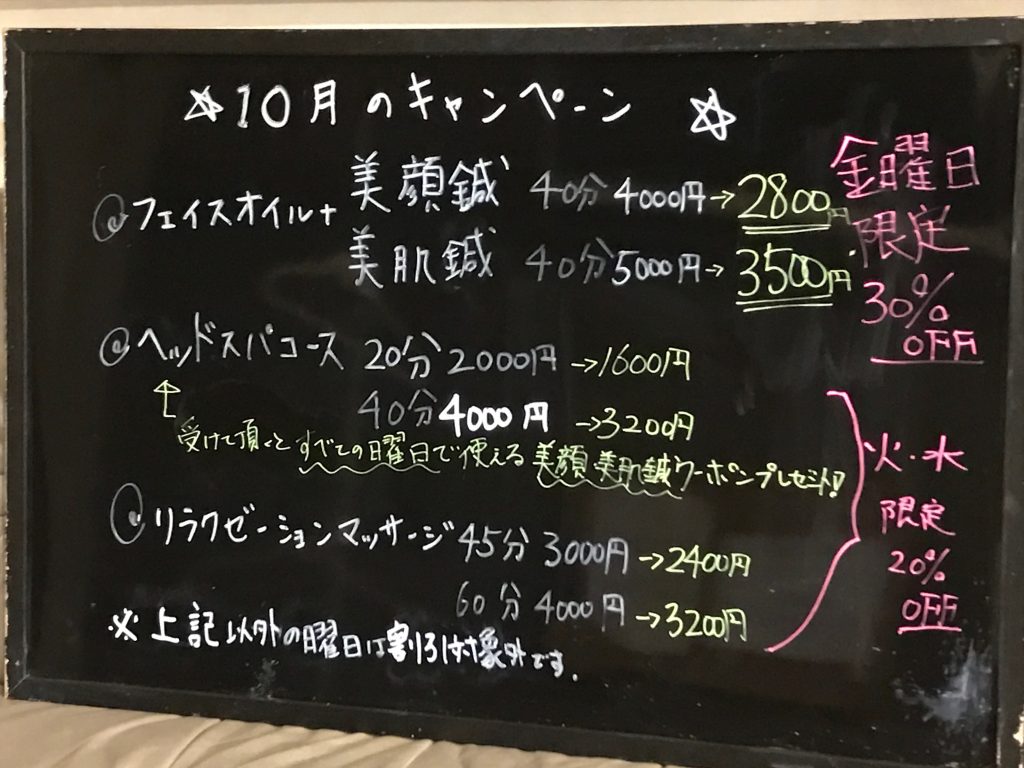 ☆10月のキャンペーン ☆
フェイスオイル+ 美顔鍼 40分 4000円→2800円
美肌鍼 40分5000円→3500円
金曜日
限定
30%
OFF
ヘッドスパコース 20分2000円→1600円
40分4000円→3200円
受けて頂くとすべての曜日で使える美顔 美肌鍼クーポンプレゼント!
リラクゼーションマッサージ 45分 3000円→2400円
60分 4000円→3200円
火・水
限定
20%
OFF
※上記以外の曜日は割引対象外です.